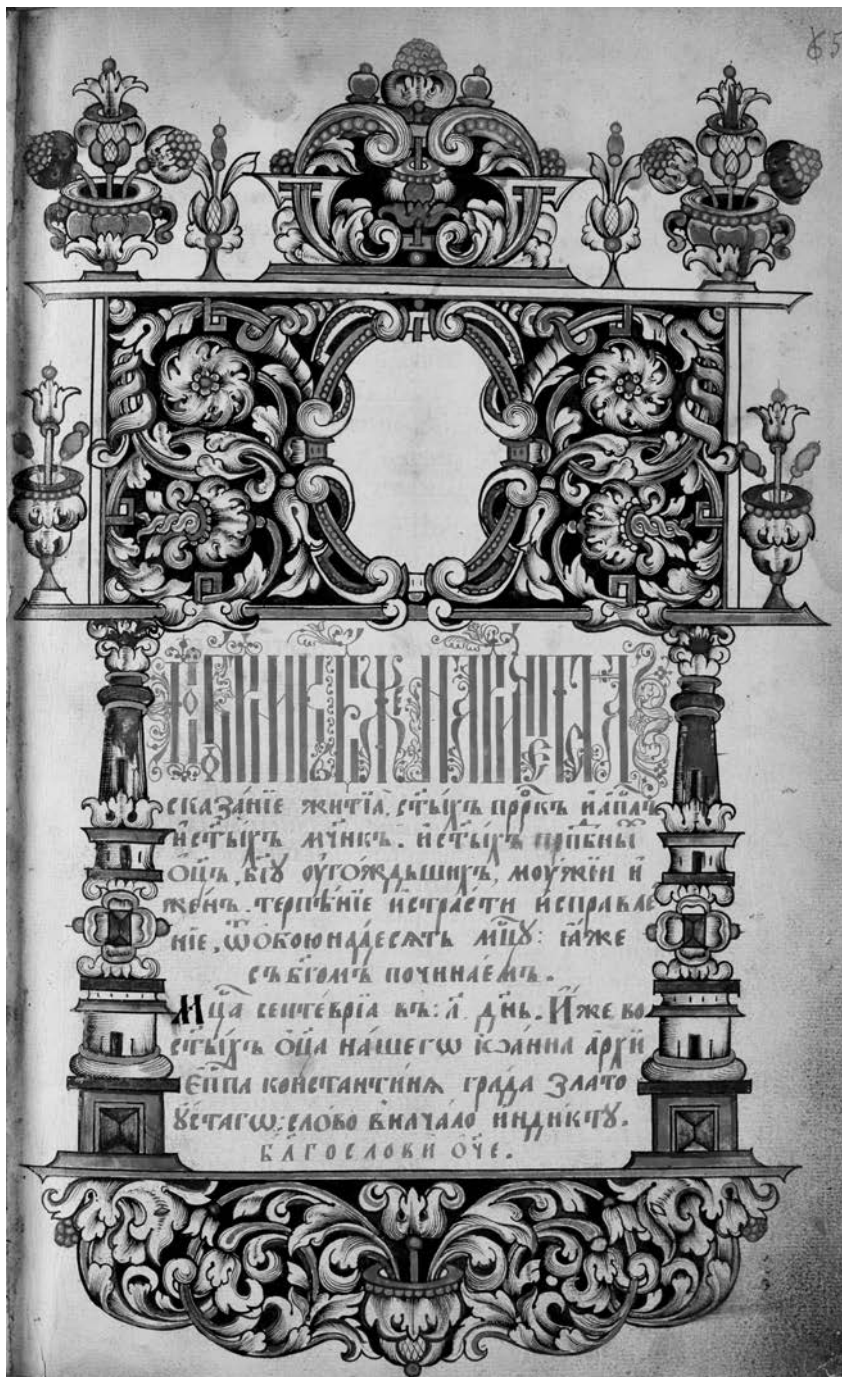 65
сказа́нїе житїѧ̀, ст҃ы́хъ прⷪ҇ркъ и҆ а҆пⷭ҇лъ
и҆ ст҃ы́хъ мч҃нкъ. и҆ ст҃ы́хъ прпⷣбны́
ѻ҆ц҃ъ, бг҃ꙋ оу҆го́ждьшихъ, моу́жеи и҆
же́нъ. терпѣ́нїе и҆ стра́сти и҆справле́
нїе, ѿ ѻ҆боюна́десѧть мц҃ꙋ: ꙗ҆́же
съ бг҃омъ почина́емъ.
Мц҃а септе́врїа въ: а҃. дн҃ь. И҆́же во
ст҃ы́хъ ѻ҆ц҃а на́шегѡ і҆ѡа́нна а҆рхїи
є҆пⷭ҇па константи́нѧ гра́да злато
ꙋ́стагѡ: сло́во в нача́ло инди́кту.
бл҃гослови́ ѻ҆́ч҃е.